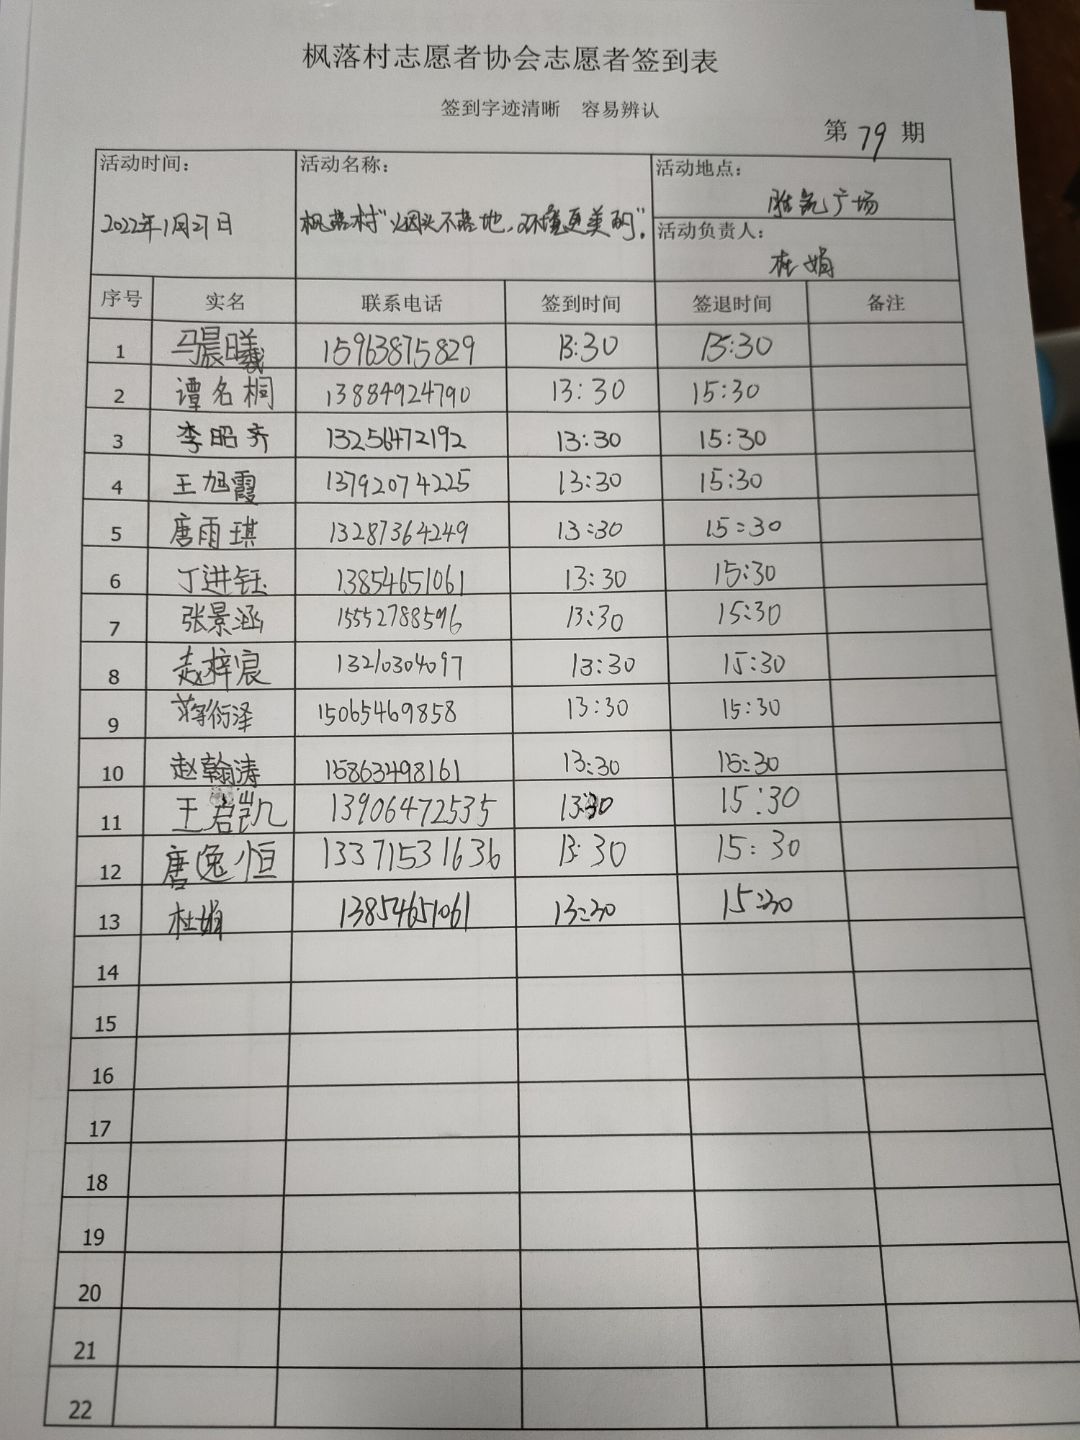 枫落村志愿者协会志愿者签到表
签到字迹清晰 容易辨认
第 79 期
活动时间： 活动名称： 活动地点：
胜凯广场
2022年1月27日 枫落村“烟头不落地，环境更美的”.
活动负责人：
杜娟
序号 实名 联系电话 签到时间 签退时间 备注
1 马晨曦 15963875829 13:30 15:30
2 谭名桐 13884924790 13:30 15:30
3 李昭齐 13256472192 13:30 15:30
4 王旭霞 13792074225 13:30 15:30
5 唐雨琪 13287364249 13:30 15:30
6 丁进钰 13854651061 13:30 15:30
7 张景涵 15552788596 13:30 15:30
8 赵梓宸 13210304097 13:30 15:30
9 蒋衍泽 15065469858 13:30 15:30
10 赵翰涛 15863498161 13:30 15:30
11 王君凯 13906472535 13:30 15:30
12 唐逸恒 13371531636 13:30 15:30
13 杜娟 13854651061 13:30 15:30
14
15
16
17
18
19
20
21
22